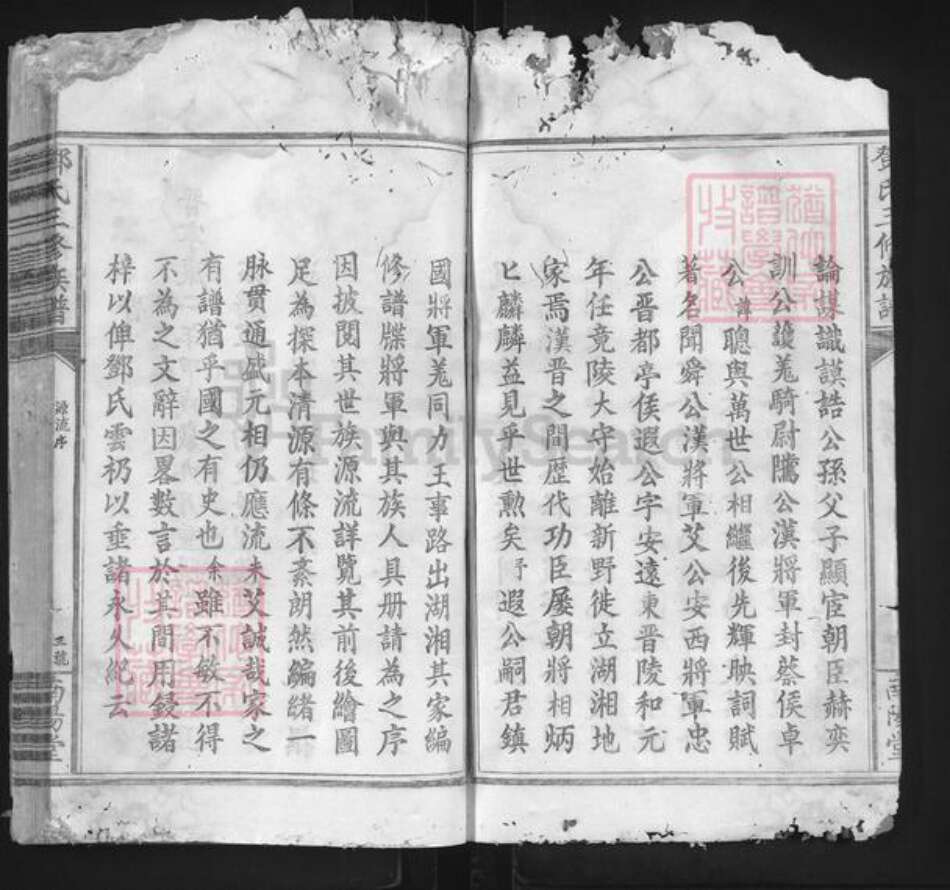 論謀識謨誥公孫父子顯宦朝臣赫奕
訓公護羗騎尉隲公漢將軍封蔡侯卓
公聰與萬世公相繼後先輝映詞賦
著名聞舜公漢將軍艾公安西將軍忠
公晉都亭侯遐公字安遠東晉陵和元
年任竟陵大守始離新野徙立湖湘地
家焉漢晉之間歴代功臣屡朝將相炳
匕麟麟益見乎世勲矣予遐公嗣君鎮
國將軍羗同力王事路出湖湘其家編
修譜牒將軍與其族人具册請為之序
因披閱其世族源流詳覽其前後繪圖
足為探本清源有條不紊朗然編緒一
脉贯通盛元相仍應流未艾誠哉家之
有譜猶乎國之有史也余雖不敏不得
不為之文辭因畧數言於其間用鋟諸
梓以俾鄧氏雲礽以垂諸永久紀云
鄧氏三修族譜
源流序
三號
南陽堂
鄧氏三修族譜
南陽堂
FamilySearch